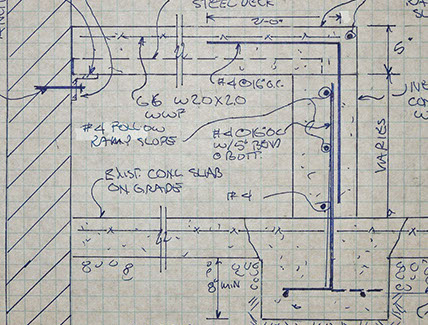 STEEL DECK
2'-0"
#4@16"O.C.
6"
66 W20X20
WWF
#4 FOLLOW
RAMP SLOPE
#4@16"OC
W/5" BEND
@ BOTT.
VARIES
EXIST CONC SLAB
ON GRADE
#4
8"
MIN